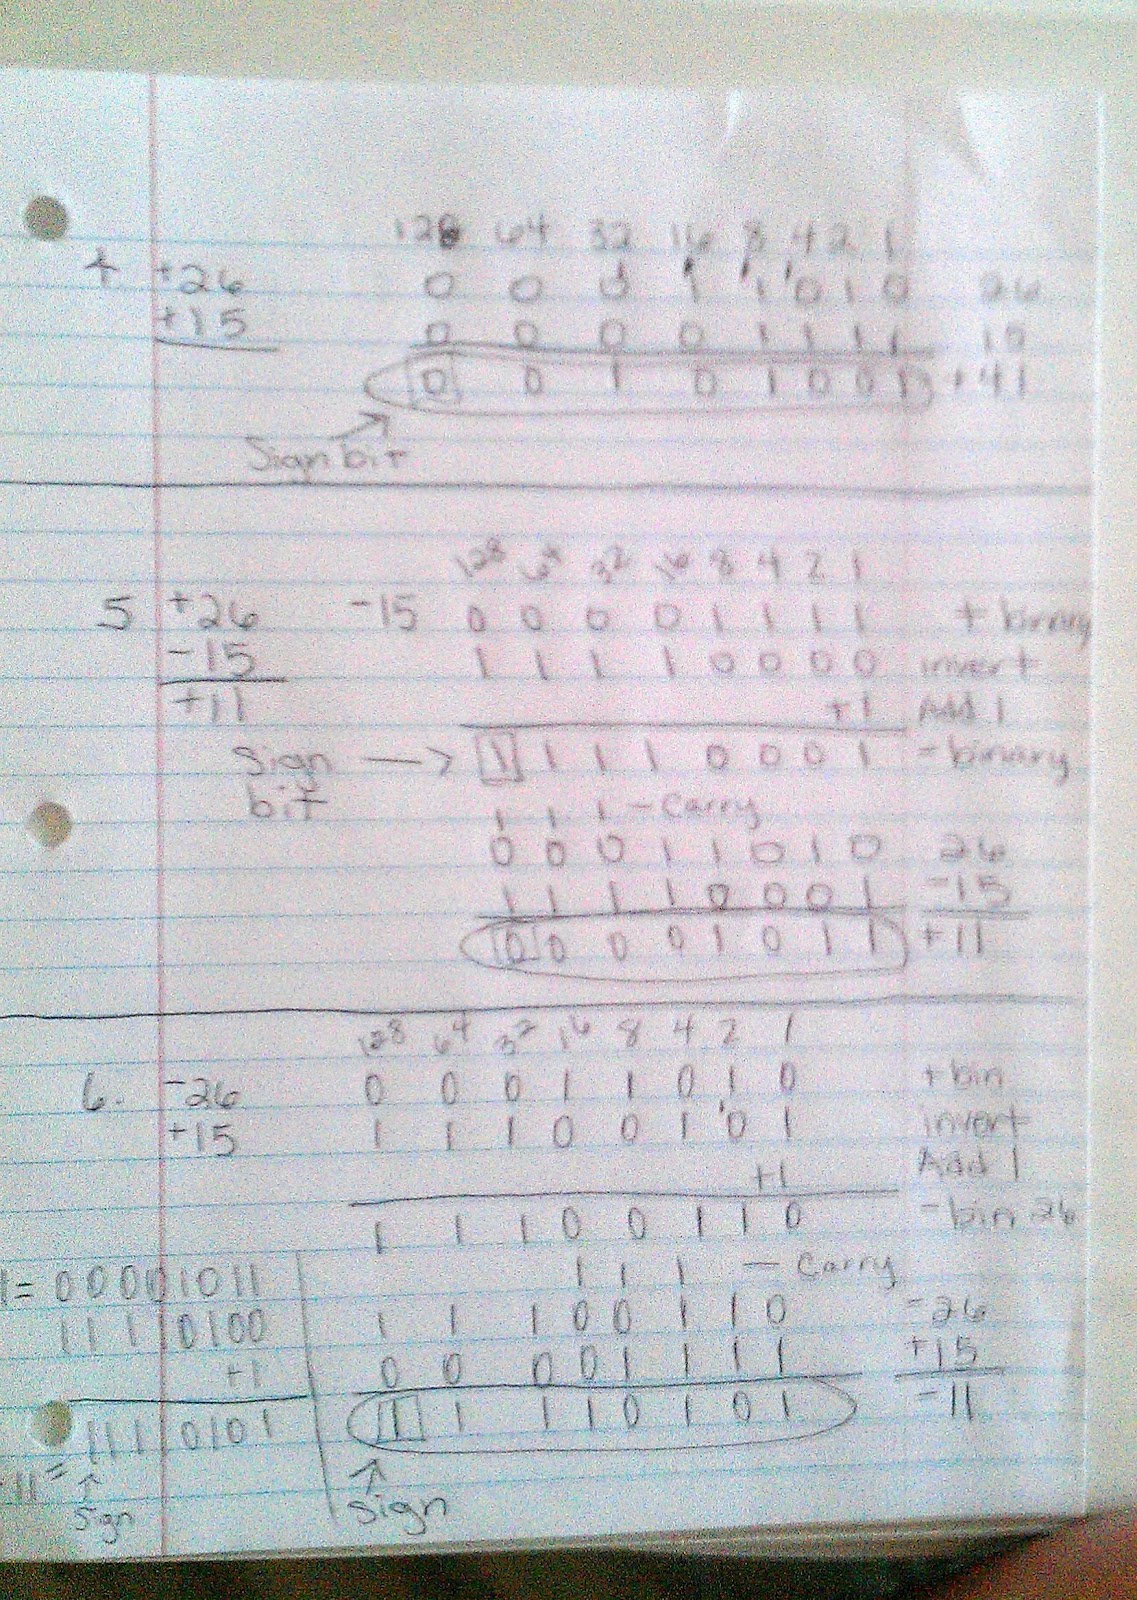 128 64 32 16 8 4 2 1
4 +26 0 0 0 1 1 0 1 0 26
+15 0 0 0 0 1 1 1 1 15
0 0 1 0 1 0 0 1 +41
Sign bit
128 64 32 16 8 4 2 1
5 +26 -15 0 0 0 0 1 1 1 1 + binary
-15 1 1 1 1 0 0 0 0 invert
+11 +1 Add 1
Sign bit → 1 1 1 1 0 0 0 1 - binary
1 1 1 - Carry
0 0 0 1 1 0 1 0 26
1 1 1 1 0 0 0 1 -15
0 0 0 0 1 0 1 1 +11
128 64 32 16 8 4 2 1
6. -26 0 0 0 1 1 0 1 0 + bin
+15 1 1 1 0 0 1 0 1 invert
+1 Add 1
1 1 1 0 0 1 1 0 - bin 26
1 1 1 - Carry
1 1 1 0 0 1 1 0 -26
0 0 0 0 1 1 1 1 +15
1 1 1 1 0 1 0 1 -11
Sign
1= 00001011
11110100
+1
11110101
-11 =
Sign